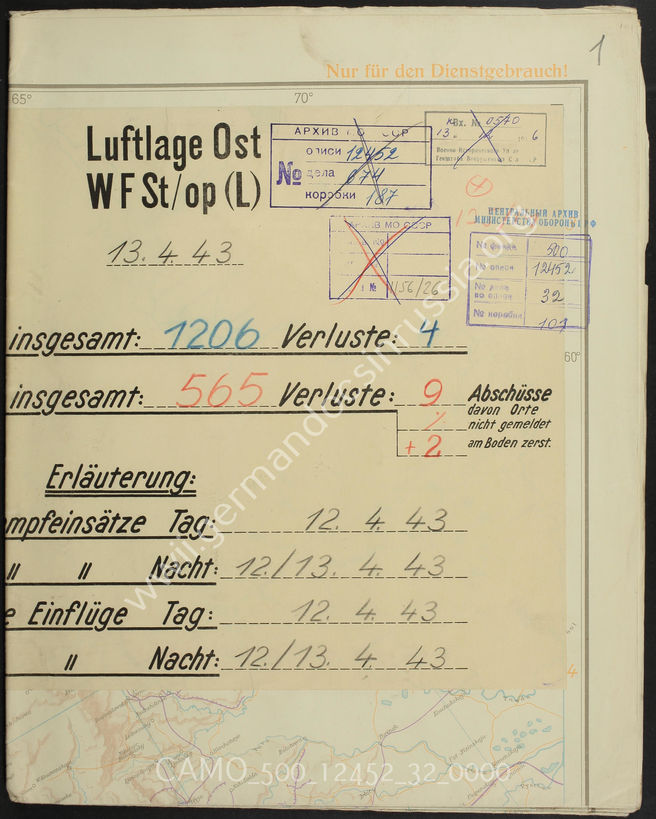 1
Nur für den Dienstgebrauch!
65°
70°
Luftlage Ost
WFSt/op (L)
13. 4. 43
АРХИВ СССР
описи 12452
№ дела 674
коробки 187
Вх. № 0540
13
6
АРХИВ МО СССР
№
№ 156/26
ЦЕНТРАЛЬНЫЙ АРХИВ
МИНИСТЕРСТВА ОБОРОНЫ РФ
№ фонда 500
№ описи 12452
№ дела по описи 32
№ коробки 107
60°
insgesamt: 1206 Verluste: 4
insgesamt: 565 Verluste: 9 Abschüsse
davon Orte
nicht gemeldet
+2 am Boden zerst.
Erläuterung:
mpfeinsätze Tag: 12. 4. 43
" " Nacht: 12./13. 4. 43
e Einflüge Tag: 12. 4. 43
" Nacht: 12./13. 4. 43
4
www.germandocsinrussia.org
CAMO_500_12452_32_0000